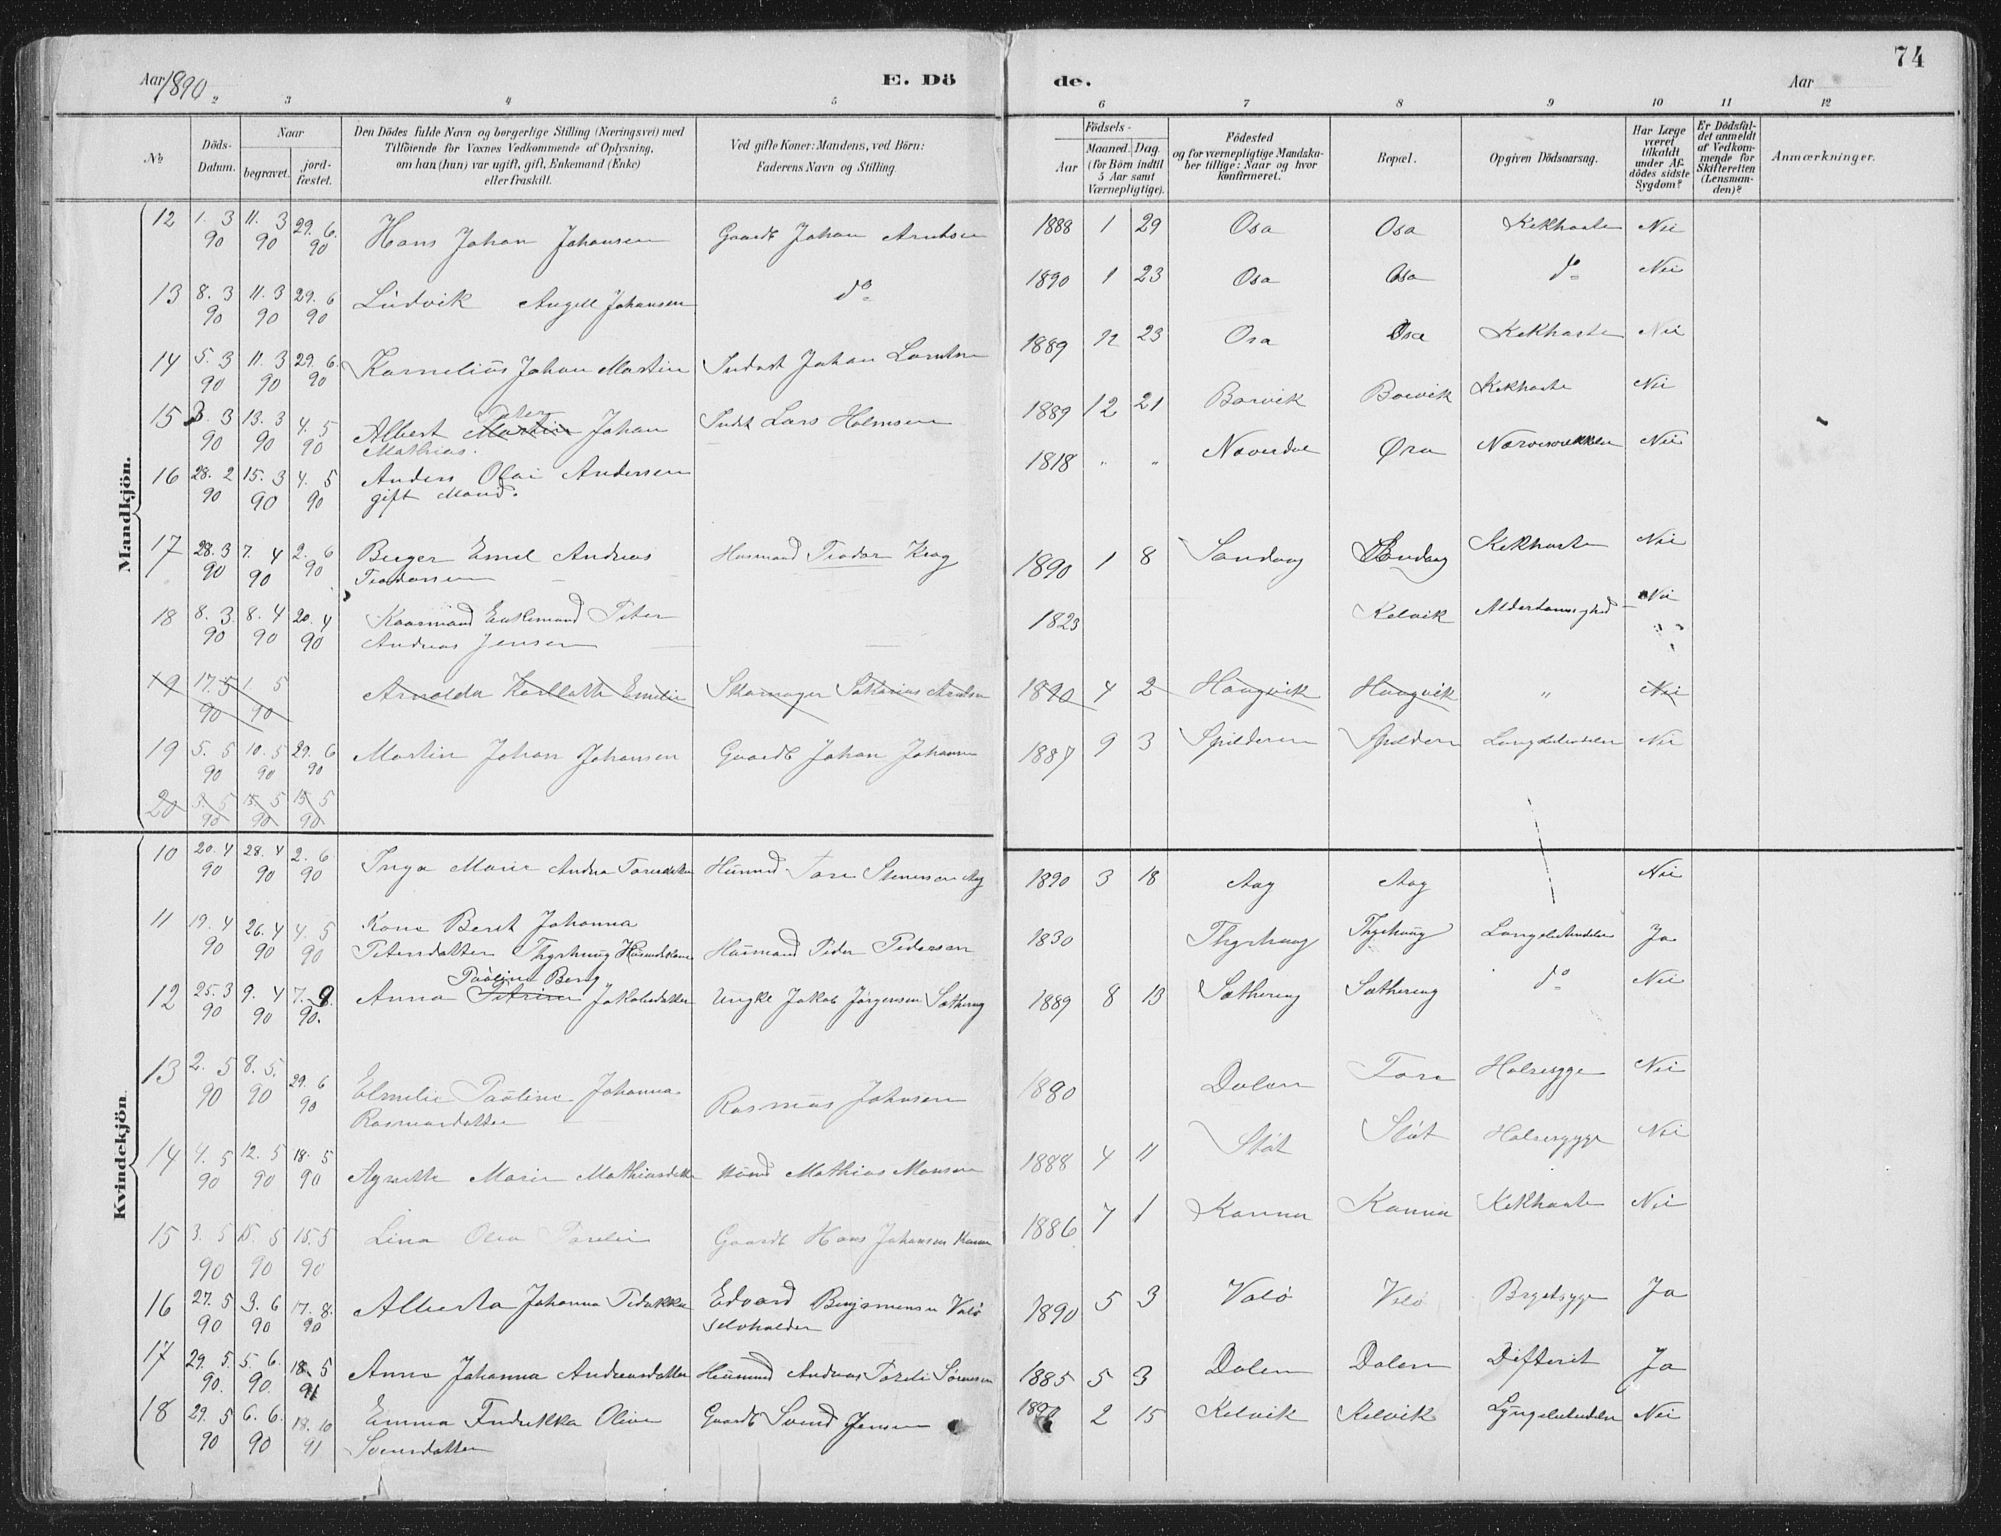 74
Aar 1890
E. Dö
de.
Aar
2 3 4 5 6 7 8 9 10 11 12
№
Döds-Datum.
Naar
begravet.
jord-fæstet.
Den Dödes fulde Navn og borgerlige Stilling (Næringsvei) med
Tilföiende for Voxnes Vedkommende af Oplysning,
om han (hun) var ugift, gift, Enkemand (Enke)
eller fraskilt.
Ved gifte Koner: Mandens, ved Börn:
Faderens Navn og Stilling.
Födsels-
Aar
Maaned. Dag.
(for Börn indtil
5 Aar samt
Værnepligtige).
Födested
og for værnepligtige Mandska-
ber tillige: Naar og hvor
konfirmeret.
Bopæl.
Opgiven Dödsaarsag.
Har Læge
været
tilkaldt
under Af-
dödes sidste
Sygdom?
Er Dödsfal-
det anmeldt
af Vedkom-
mende for
Skifteretten
(Lensman-
den)?
Anmærkninger.
Mandkjön.
12 1. 3 90 11. 3 90 29. 6. 90 Hans Johan Johansen Gaardb Johan Arntsen 1888 1 29 Osa Osa Kikhoste Nei
13 8. 3 90 11. 3 90 29. 6 90 Ludvik Angell Johansen do 1890 1 23 Osa Osa do Nei
14 5. 3 90 11. 3 90 29. 6. 90 Kornelius Johan Martin Indst Johan Lorntsen 1889 12 23 Osa Osa Kikhoste Nei
15 3. 3 90 13. 3 90 4. 5 90 Albert Martin Peter Johan Indst Lars Holmsen 1889 12 21 Borvik Borvik Kikhoste Nei
Mathias.
16 28. 2 90 15. 3 90 4. 5 90 Anders Olai Andersen 1818 " " Næverdal Øra Nei
gift Mand.
17 28. 3 90 7. 4 90 2. 6 90 Birger Emil Andreas Husmand Teodor Krog 1890 1 8 Sandvog Sandvog Kikhoste Nei
Teodorsen
18 8. 3. 90 8. 4 90 20. 4 90 Kaarmand Enkemand Peter 1823 Kelvik Alderdomssvaghed Nei
Andreas Jensen
19 17. 5 90 1. 5 90 Arnolda Emilie Skomager Arntsen 1890 4 2 Haagvik Haagvik " Nei
19 5. 5 90 10. 5 90 29. 6 90 Martin Johan Johansen Gaardb Johan Johansen 1887 9 3 Spilderen Spilderen Nei
20 3. 5 90 15. 5 90 15. 5 90
Kvindekjön.
10 20. 4 90 28. 4 90 2. 6. 90 Inga Marie Andrea Toresdatter Husmd. Tore Stenersen Aag 1890 3 18 Aag Aag Nei
11 19. 4 90 26. 4 90 4. 5 90 Kone Beret Johanna
Petersdatter Thyrhaug Husmdskone Husmand Peder Pedersen 1830 Thyrhaug Thyrhaug Ja
12 25. 3 90 9. 4 90 7. 9. 90. Anna Petrine Pauline Berg Jakobsdatter Ungkl Jakob Jørgensen Sæthereng 1889 8 13 Sæthereng Sæthereng do Nei
13 2. 5 90 8. 5. 90 29. 6 90 Elmelie Pauline Johanna Rasmus Johnsen 1890 Dalen Fore Halssyge Nei
Rasmusdatter
14 4. 5 90 12. 5 90 18. 5 90 Agnethe Marie Mathiasdatter Mathias Monsen 1888 4 11 Støt Støt Halssyge Nei
15 3. 5 90 15. 5 90 15. 5 90 Lina Olea Parelie Gaardb Hans Johansen Kunna 1886 7 1 Kunna Kunna Kikhoste Nei
16 27. 5 90 3. 6 90 17. 8. 90 Alberta Johanna Fedrikka Edvard Benjaminsen Valø 1890 5 3 Valø Valø Brystsyge Ja
Selvholder
17 29. 5. 90. 5. 6. 90. 18. 5 91 Anna Johanna Andreasdatter Husmnd Andreas Pareli Sørensen 1885 5 3 Dalen Dalen Difterit Ja
18 29. 5 90 6. 6. 90 18. 10 91 Emma Fredrikka Oline Gaardb Svend Jensen 2 15 Kelvik Kelvik Nei
Svensdatter